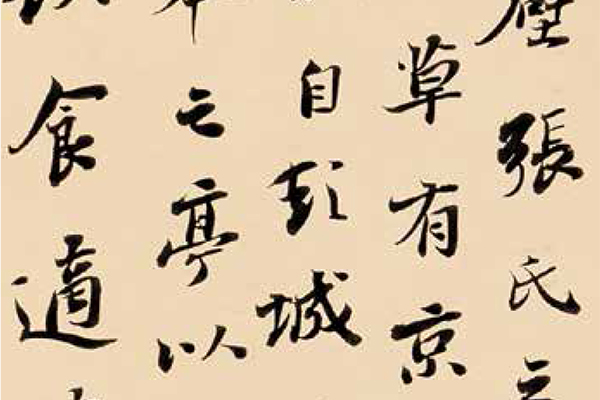 壁張氏之
草有京
自彭城
之亭以
飲食適